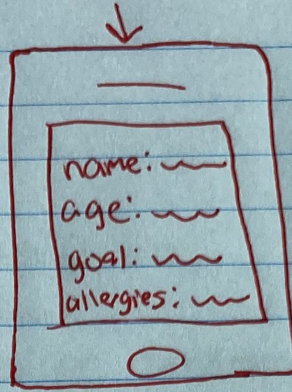 name:
age:
goal:
allergies: